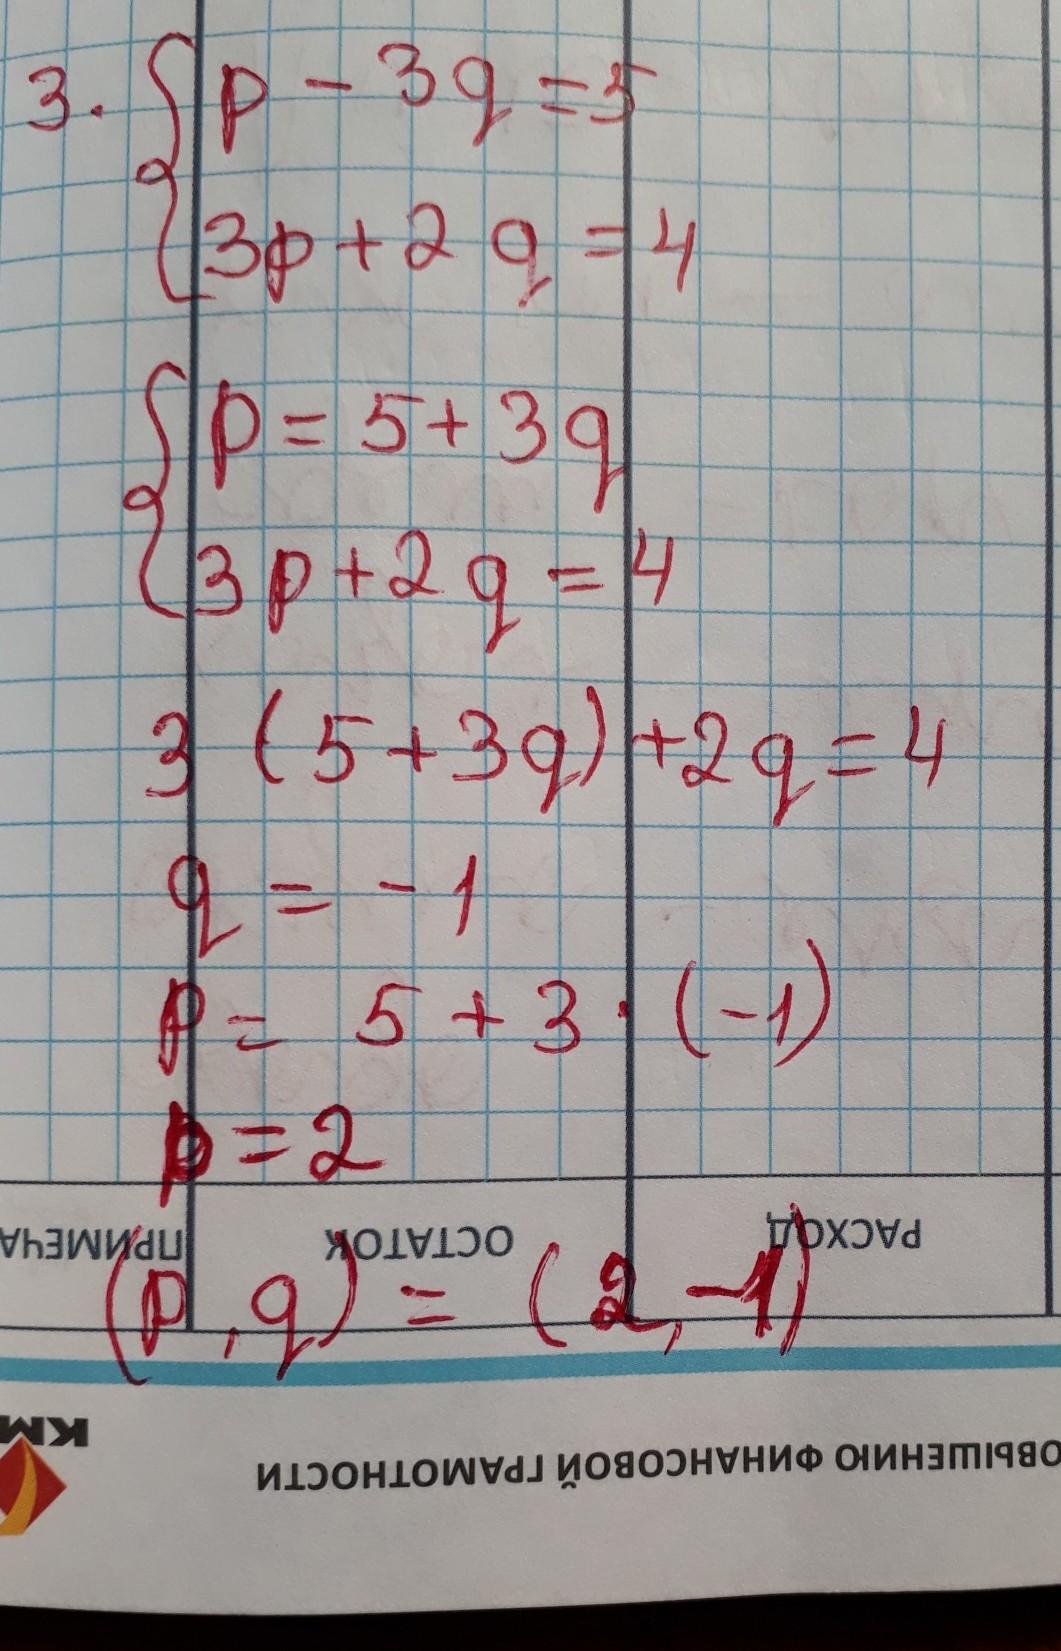 3. { p - 3q = 5
3p + 2q = 4
{ p = 5 + 3q
3p + 2q = 4
3 (5 + 3q) + 2q = 4
q = -1
p = 5 + 3 · (-1)
p = 2
ПРИМЕЧА ОСТАТОК РАСХОД
(p, q) = (2, -1)
КМ
ОВЫШЕНИЮ ФИНАНСОВОЙ ГРАМОТНОСТИ